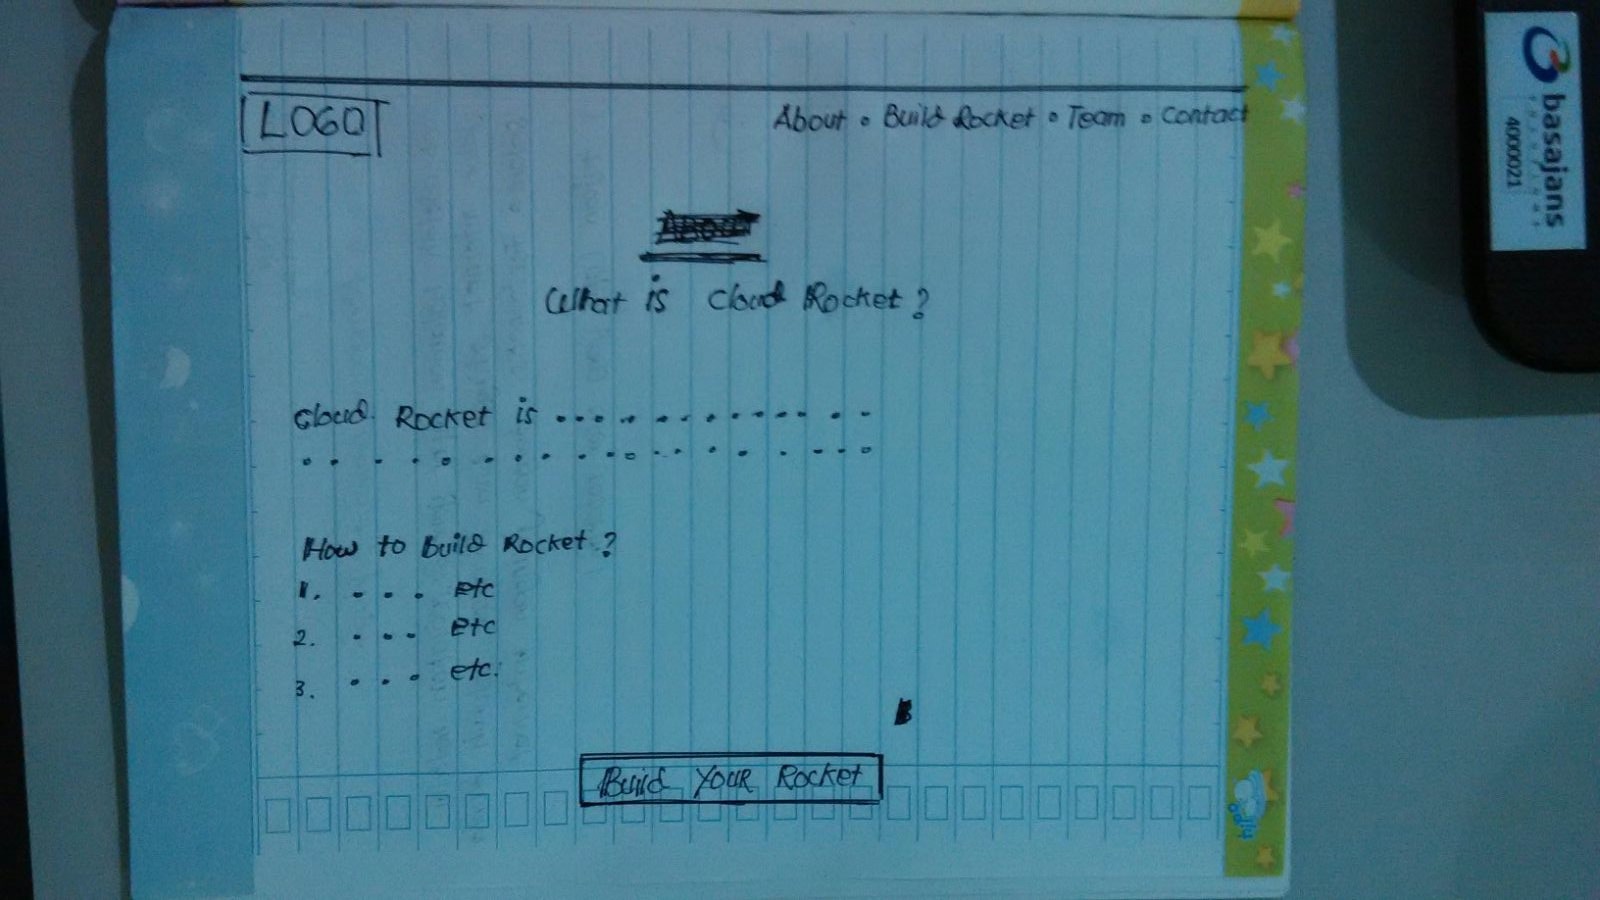 LOGO
About • Build Rocket • Team • Contact
What is Cloud Rocket?
Cloud Rocket is ..............
....................
How to Build Rocket?
1. . . . etc
2. . . . etc
3. . . . etc.
Build Your Rocket
basajans
4000021